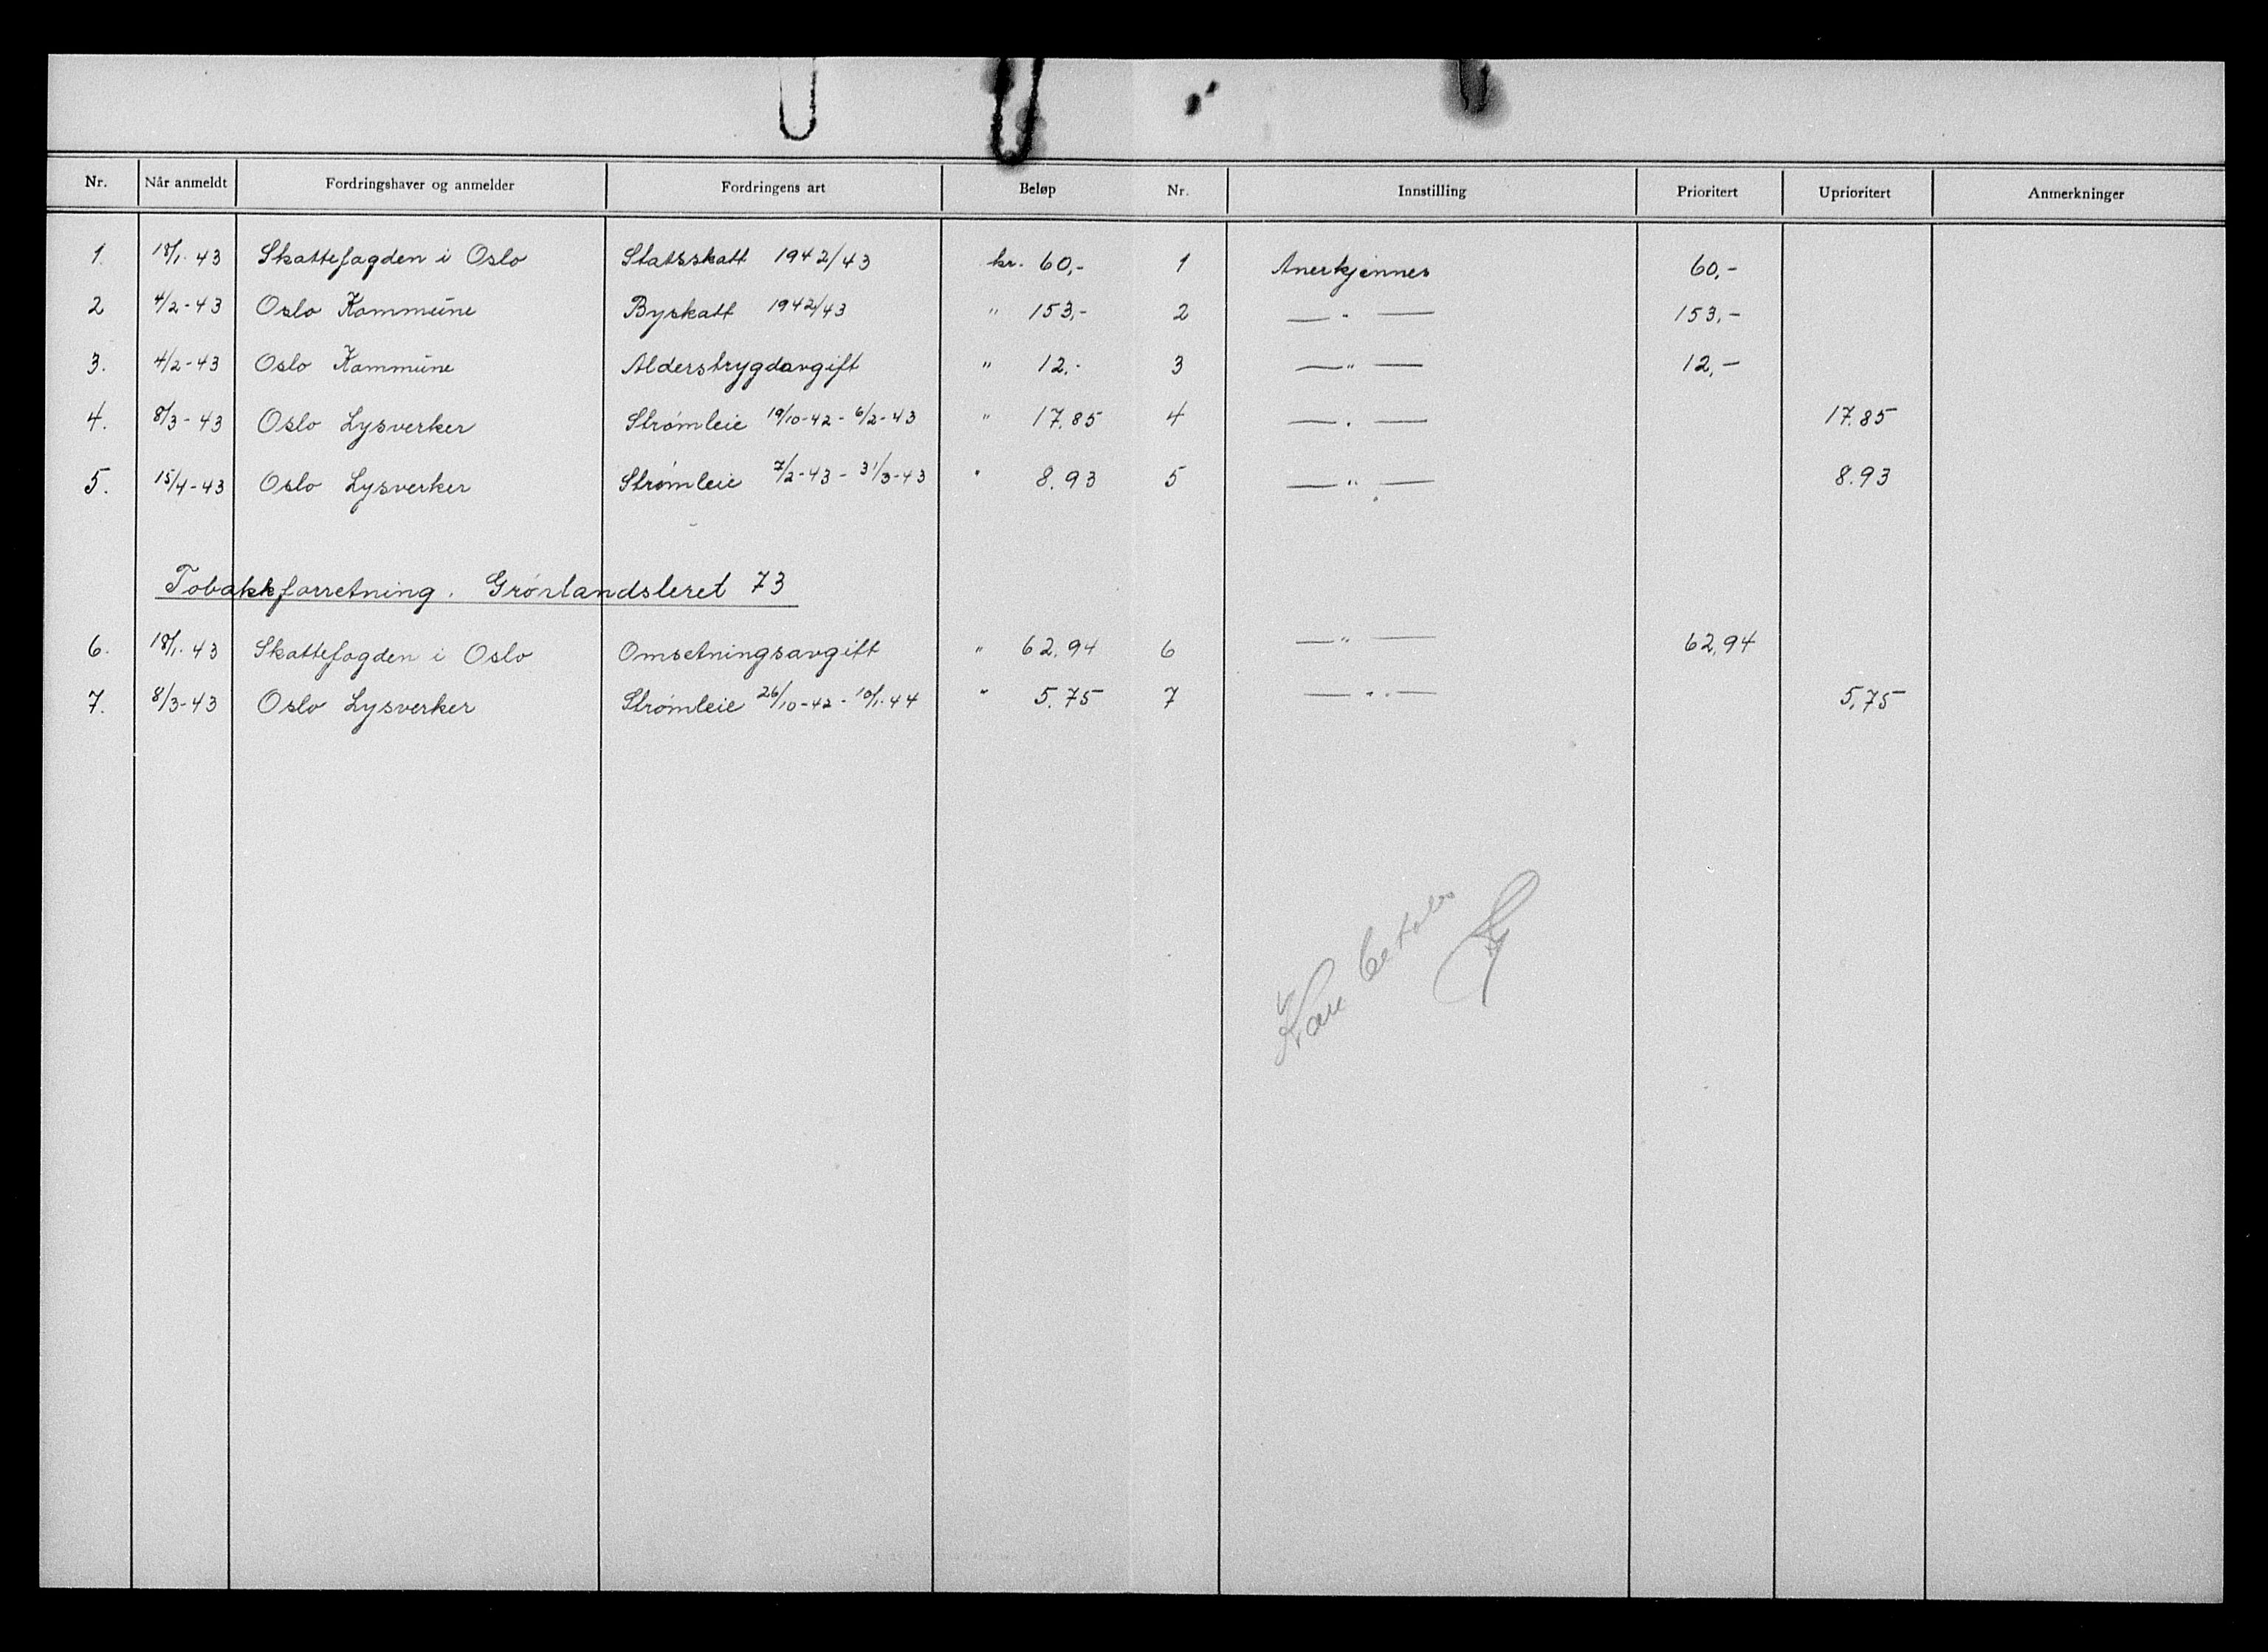 Nr. Når anmeldt Fordringshaver og anmelder Fordringens art Beløp Nr. Innstilling Prioritert Uprioritert Anmerkninger
1. 18/1-43 Skattefogden i Oslo Statsskatt 1942/43 kr. 60,- 1 Anerkjennes 60,-
2 4/2-43 Oslo Kommune Byskatt 1942/43 " 153,- 2 —"— 153,-
3. 4/2-43 Oslo Kommune Alderstrygdavgift " 12,- 3 —"— 12,-
4. 8/3-43 Oslo Lysverker Strømleie 19/10-42 - 6/2-43 " 17.85 4 —"— 17.85
5. 15/4-43 Oslo Lysverker Strømleie 7/2-43 - 31/3-43 " 8.93 5 —"— 8.93
Tobakkforretning. Grønlandsleret 73
6. 18/1-43 Skattefogden i Oslo Omsetningsavgift " 62.94 6 —"— 62,94
7. 8/3-43 Oslo Lysverker Strømleie 26/10-42 - 10/1-44 " 5.75 7 —"— 5,75
Kan betales